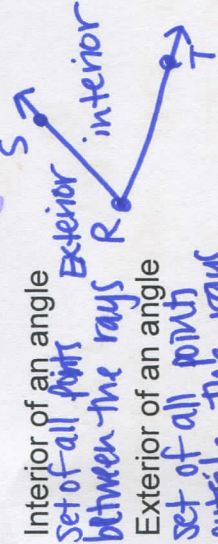 Interior of an angle
Set of all points
between the rays
Exterior of an angle
set of all points
S
Exterior
R
interior
T